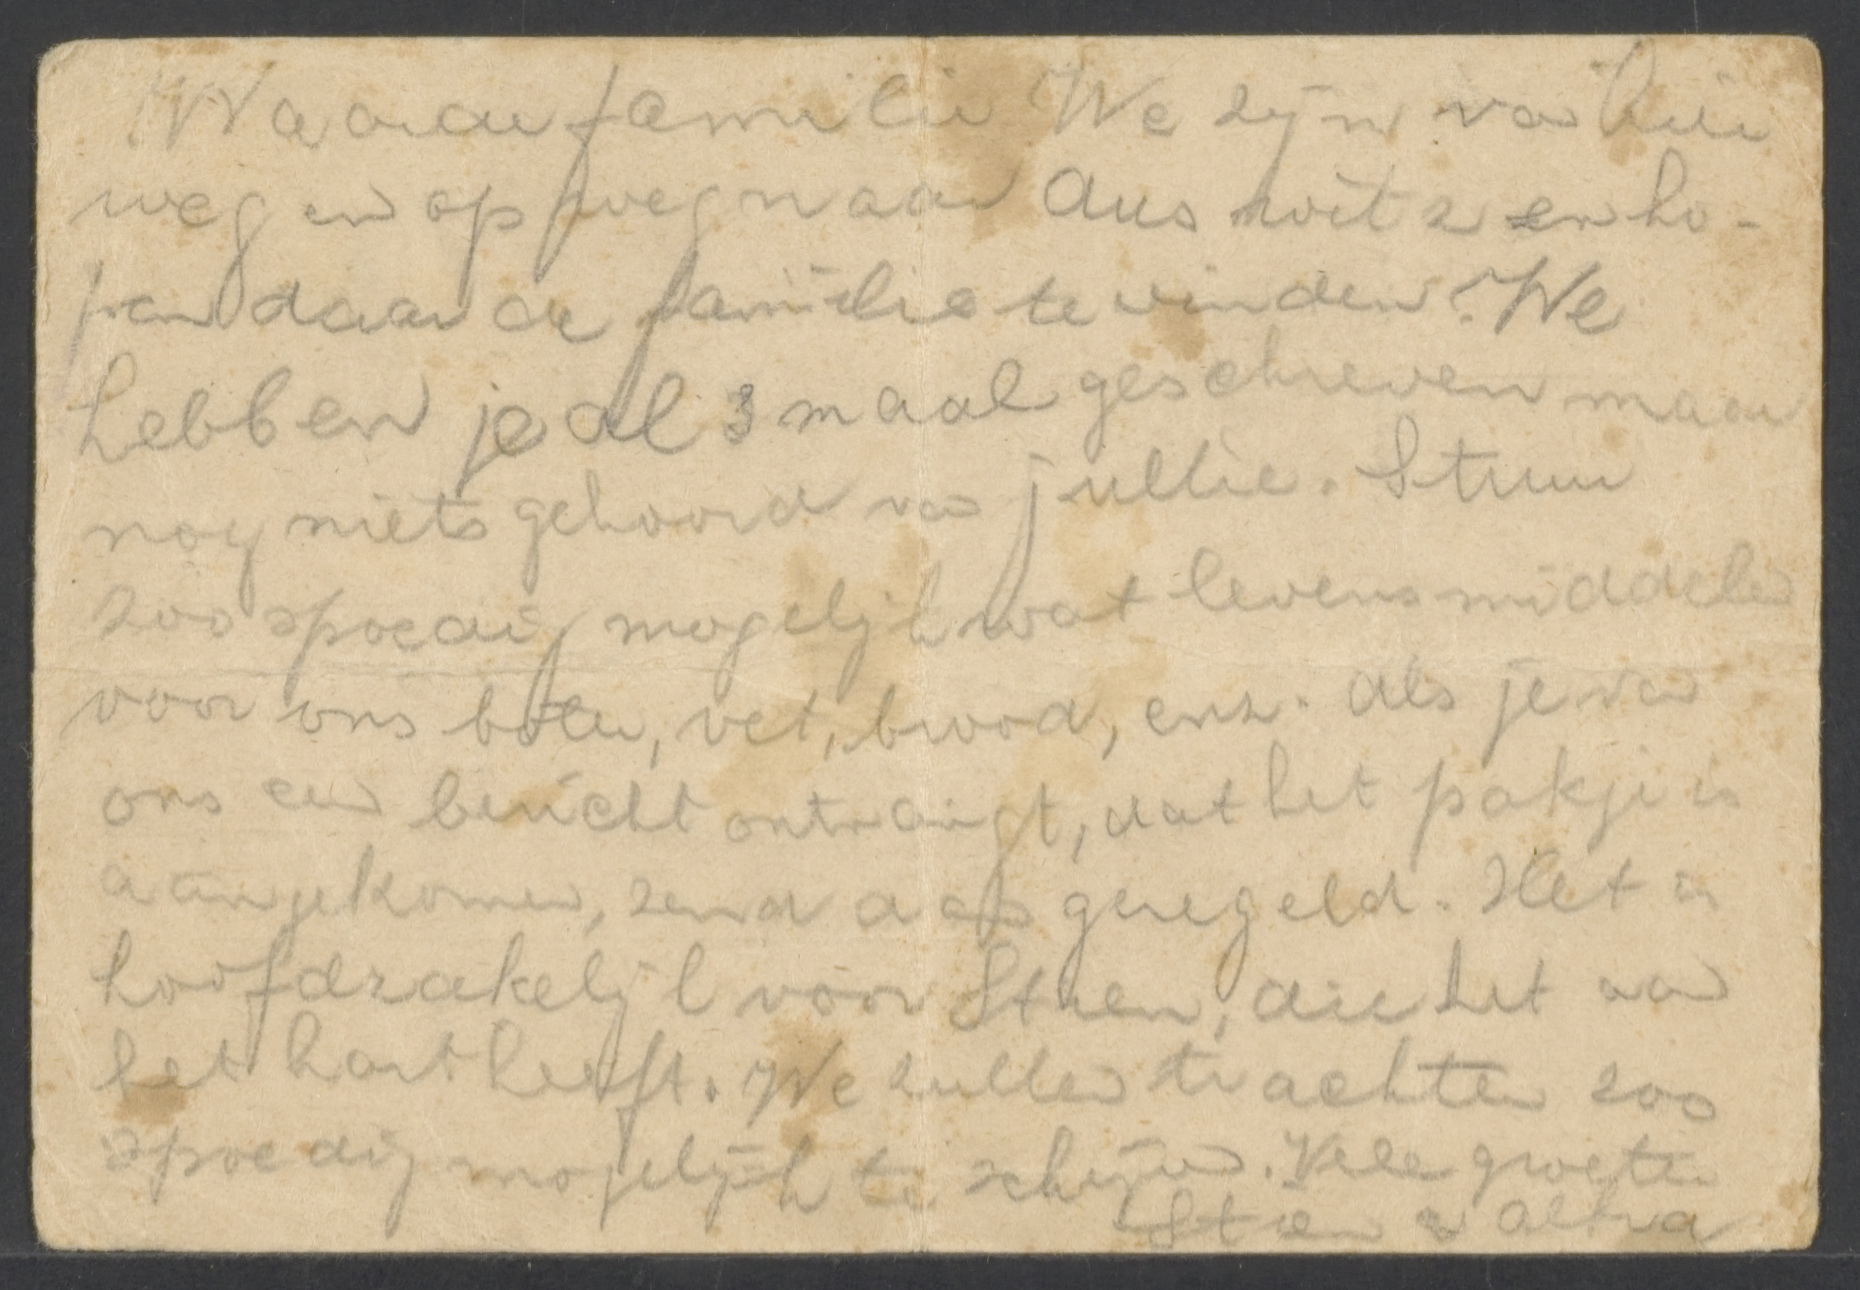 Waarde familie We zijn van hier
weg en op weg naar Auswitz en ho-
pen daar de familie te vinden. We
hebben je al 3 maal geschreven maar
nog niets gehoord van jullie. Stuur
zoo spoedig mogelijk wat levensmiddelen
voor ons boter, vet, brood, enz. Als je van
ons een bericht ontvangt, dat het pakje is
aangekomen, zend dan geregeld. Het is
hoofdzakelijk voor Stien, die het aan
het hart heeft. We zullen trachten zoo
spoedig mogelijk te schrijven. Vele groeten
Stien